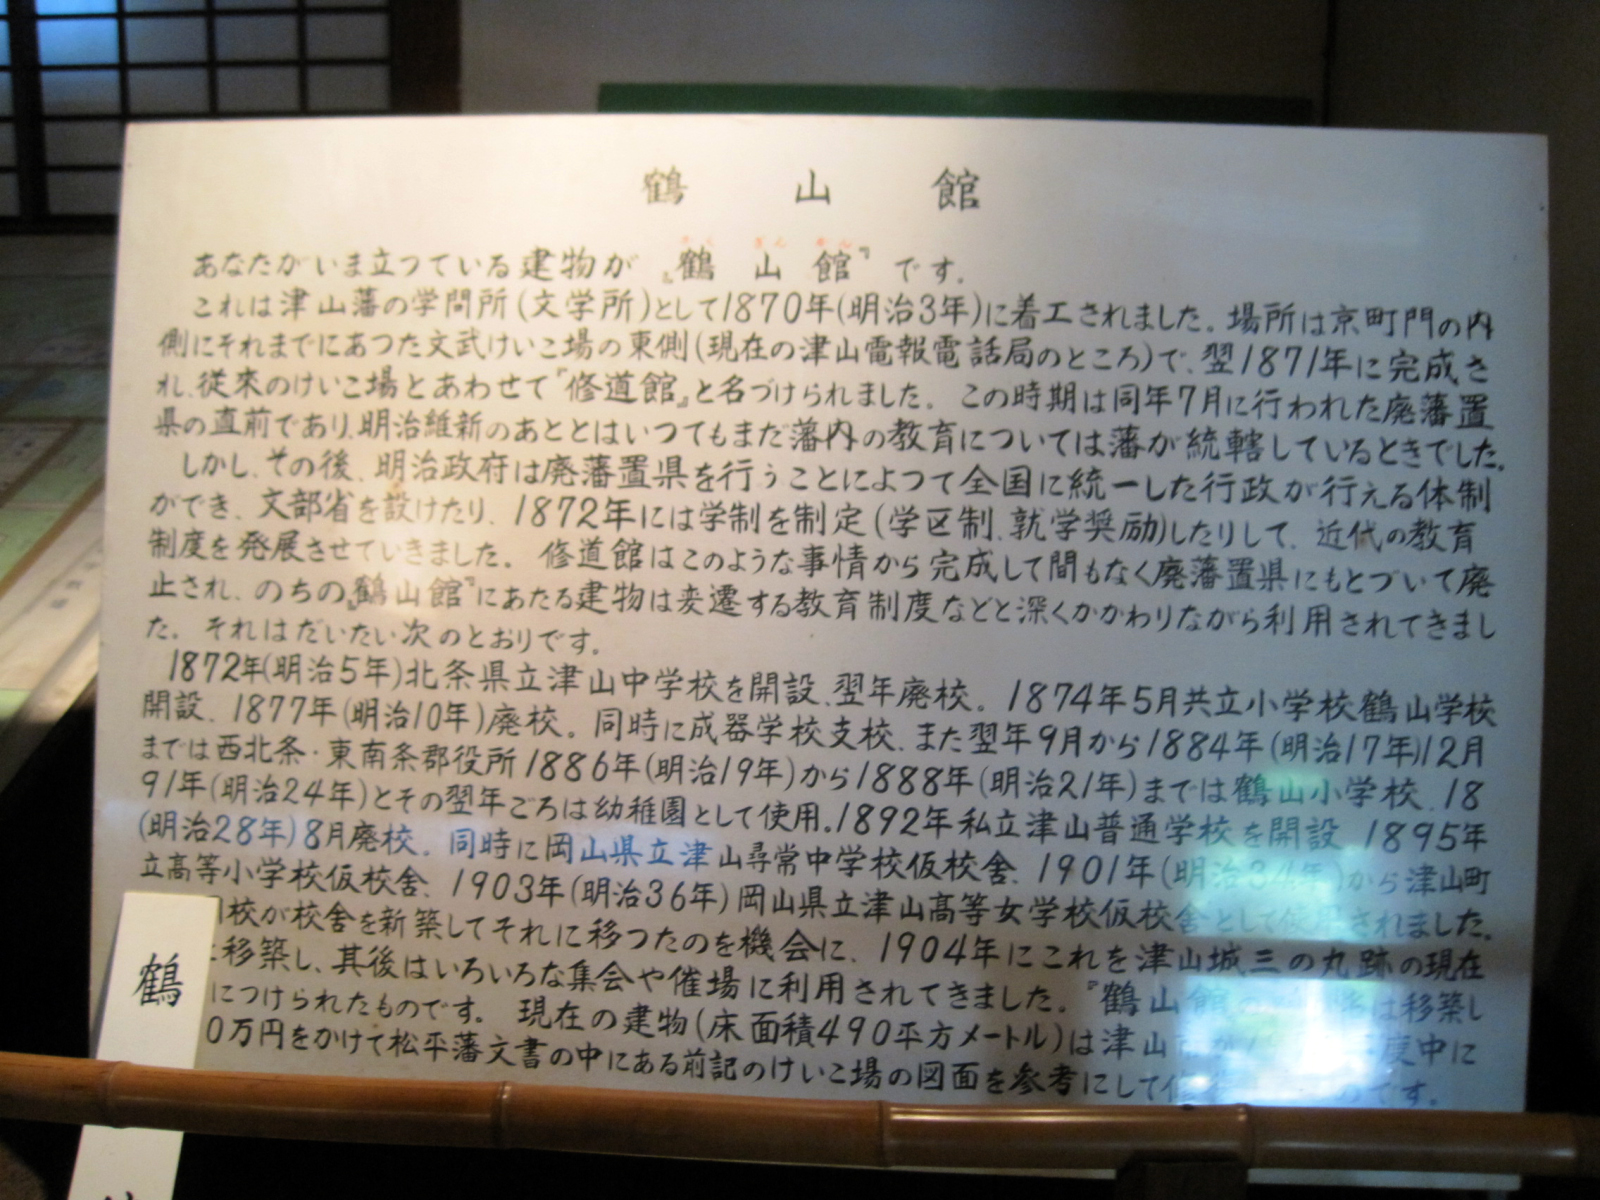 鶴山館
かくざんかん
あなたがいま立つている建物が『鶴山館』です。
これは津山藩の学問所(文学所)として1870年(明治3年)に着工されました。場所は京町門の内
側にそれまでにあつた文武けいこ場の東側(現在の津山電報電話局のところ)で、翌1871年に完成さ
れ、従来のけいこ場とあわせて『修道館』と名づけられました。この時期は同年7月に行われた廃藩置
県の直前であり、明治維新のあととはいつてもまだ藩内の教育については藩が統轄しているときでした。
しかし、その後、明治政府は廃藩置県を行うことによつて全国に統一した行政が行える体制
ができ、文部省を設けたり、1872年には学制を制定(学区制、就学奨励)したりして、近代の教育
制度を発展させていきました。修道館はこのような事情から完成して間もなく廃藩置県にもとづいて廃
止され、のちの『鶴山館』にあたる建物は変遷する教育制度などと深くかかわりながら利用されてきまし
た。それはだいたい次のとおりです。
1872年(明治5年)北条県立津山中学校を開設、翌年廃校。1874年5月共立小学校鶴山学校
開設、1877年(明治10年)廃校。同時に成器学校支校、また翌年9月から1884年(明治17年)12月
までは西北条・東南条郡役所1886年(明治19年)から1888年(明治21年)までは鶴山小学校、18
91年(明治24年)とその翌年ごろは幼稚園として使用。1892年私立津山普通学校を開設、1895年
(明治28年)8月廃校。同時に岡山県立津山尋常中学校仮校舎、1901年(明治34年)から津山町
立高等小学校仮校舎、1903年(明治36年)岡山県立津山高等女学校仮校舎として使用されました。
校が校舎を新築してそれに移つたのを機会に、1904年にこれを津山城三の丸跡の現在
移築し、其後はいろいろな集会や催場に利用されてきました。『鶴山館の は移築し
につけられたものです。現在の建物(床面積490平方メートル)は津山 度中に
0万円をかけて松平藩文書の中にある前記のけいこ場の図面を参考にして のです。
鶴